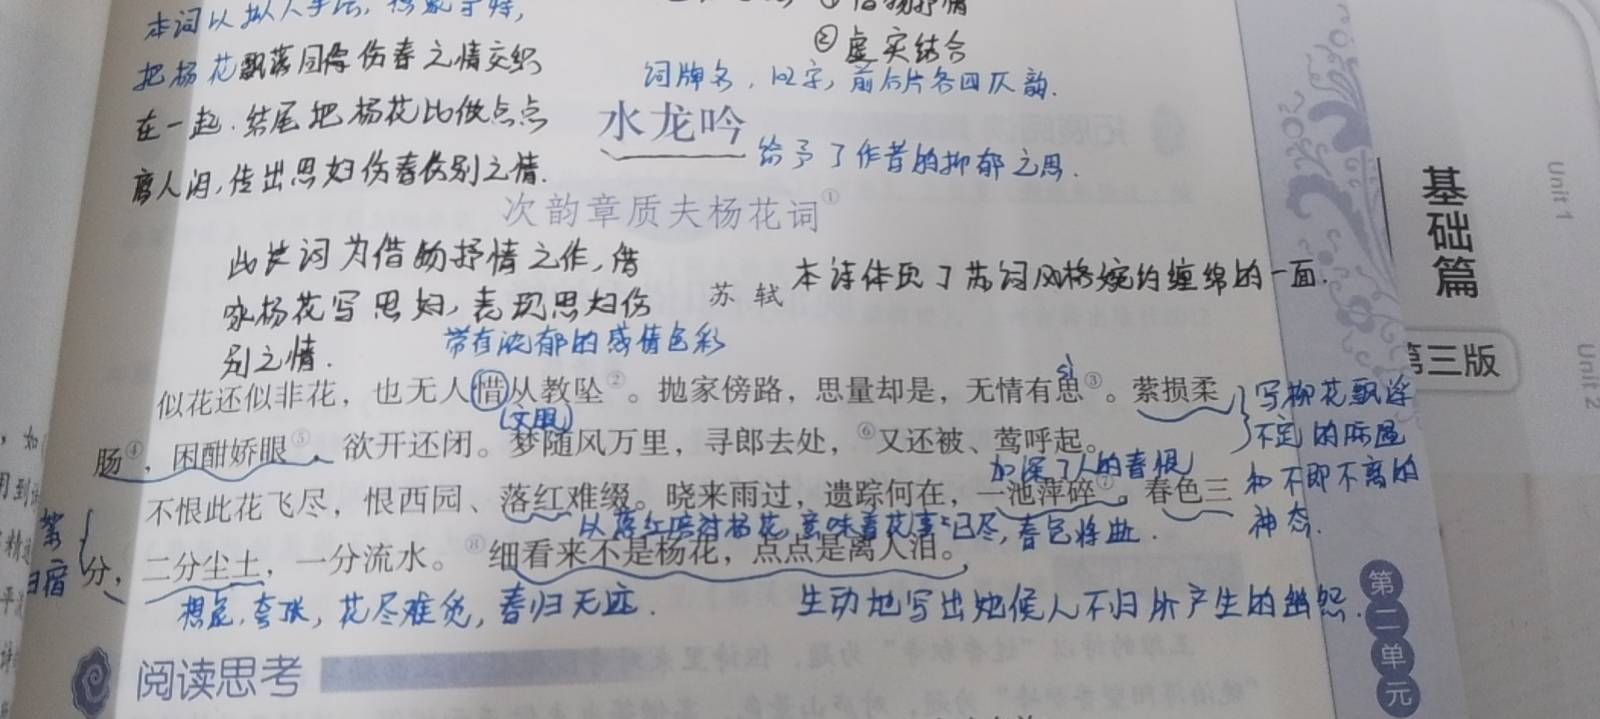 本词以拟人手法,
借物抒情
②虚实结合
把杨花飘落同 伤春之情交织
词牌名, 102字, 前后片各四仄韵.
在一起.结尾把杨花比做点点
水龙吟
给予了作者的抑郁之思.
离人泪,传出思妇伤春伤别之情.
次韵章质夫杨花词①
此 词为借物抒情之作,借
咏杨花写思妇,表现思妇伤
别之情.
苏 轼
本诗体现了苏词风格婉约缠绵的一面.
带有浓郁的感情色彩
似花还似非花,也无人惜从教坠②。抛家傍路,思量却是,无情有思③。萦损柔
sì
写柳花飘浮
(文眼)
肠④,困酣娇眼⑤,欲开还闭。梦随风万里,寻郎去处,⑥又还被、莺呼起。
不定的
加深了人的春恨
不恨此花飞尽,恨西园、落红难缀。晓来雨过,遗踪何在,一池萍碎⑦。春色三
和不即不离的
神态.
以落红陪衬杨花,意味着花事已尽,春色将逝.
归宿
分,二分尘土,一分流水。⑧细看来不是杨花,点点是离人泪。
想象,夸张,花尽难觅,春归无迹.
生动地写出她候人不归所产生的幽怨.
阅读思考
基础篇
第三版
Unit 1
Unit 2
第二单元